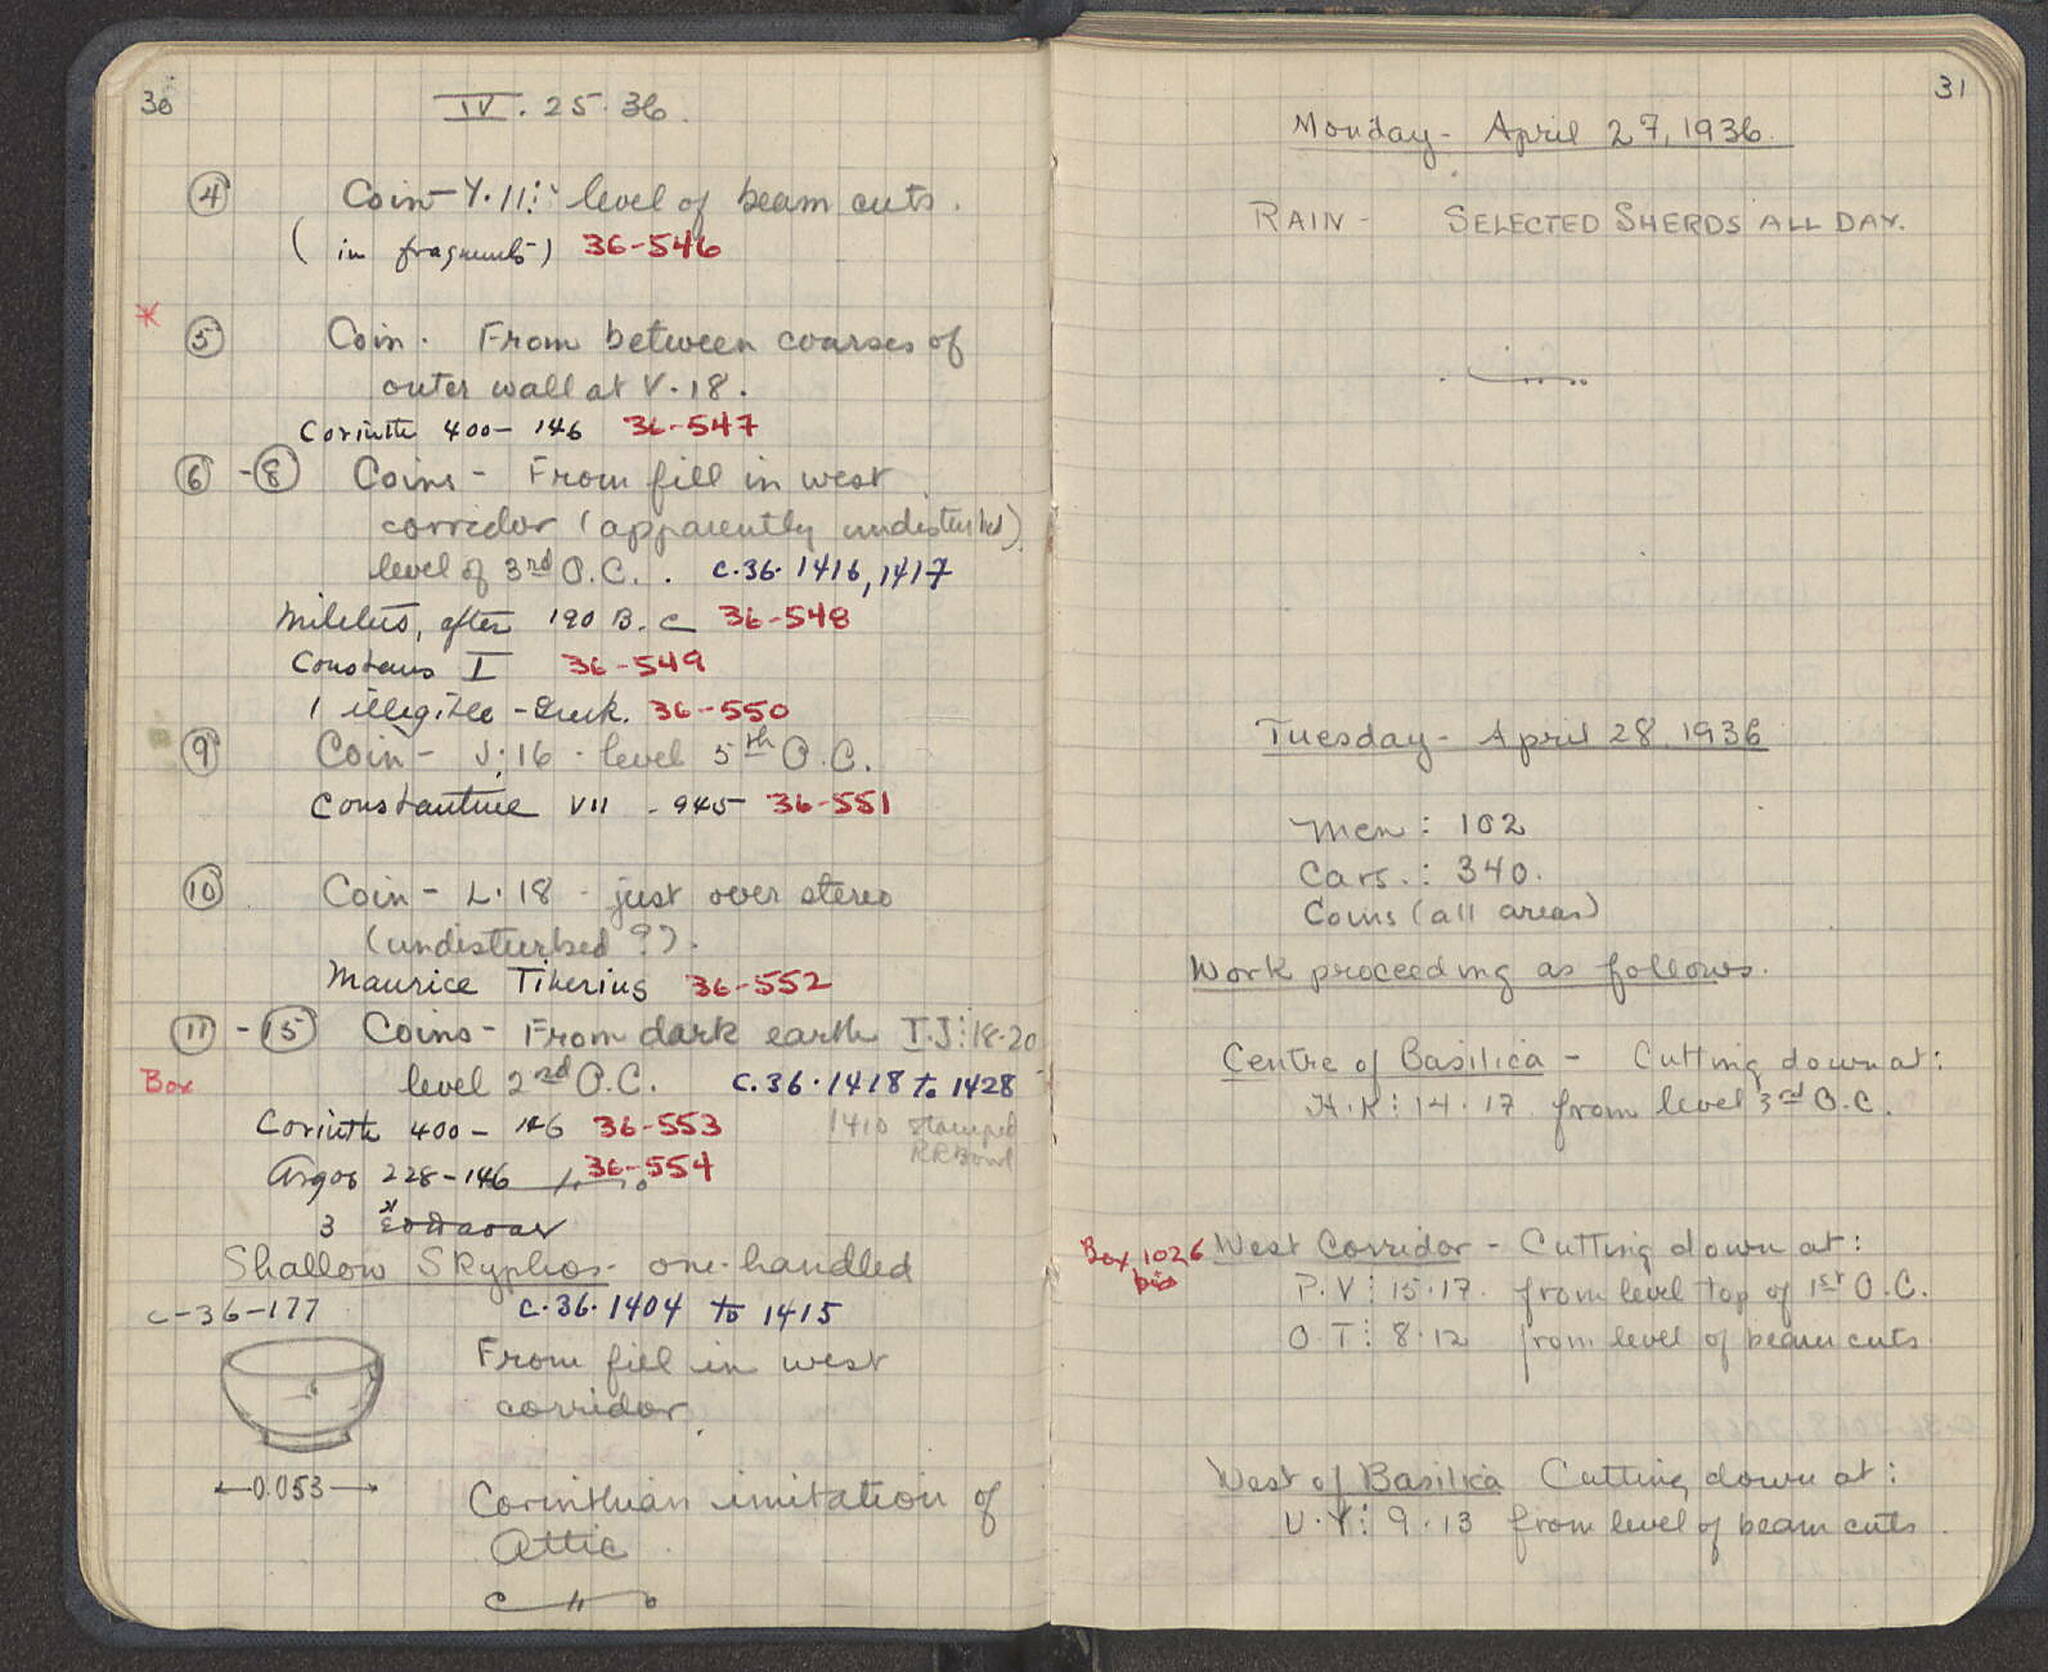 30
IV. 25. 36.
④ Coin - Y. 11: level of beam cuts.
(in fragments) 36-546
*
⑤ Coin. From between courses of
outer wall at V. 18.
Corinth 400-146 36-547
⑥ - ⑧ Coins - From fill in west
corridor (apparently undisturbed)
level of 3rd O.C. . C.36.1416, 1417
Miletus, after 190 B.C 36-548
Constans I 36-549
1 illegible - Greek. 36-550
⑨ Coin - J:16 - level 5th O.C.
Constantine VII - 945 36-551
⑩ Coin - L. 18 - just over stereo
(undisturbed?).
Maurice Tiberius 36-552
⑪ - ⑮ Coins - From dark earth I.J:18-20
Box level 2nd O.C. C.36.1418 to 1428
Corinth 400-146 36-553 1410 stamped
RR Bowl
Argos 228-146 36-554
3
Shallow Skyphos - one-handled
C-36-177 C.36.1404 to 1415
From fill in west
corridor.
←0.053→
Corinthian imitation of
Attic
31
Monday - April 27, 1936.
RAIN - SELECTED SHERDS ALL DAY.
Tuesday - April 28, 1936
Men: 102
Cars.: 340.
Coins (all areas)
Work proceeding as follows.
Centre of Basilica - Cutting down at:
H.K: 14.17 from level 3rd O.C.
Box 1026 West Corridor - Cutting down at:
bis P.V: 15.17. from level top of 1st O.C.
O.T: 8.12 from level of beam cuts
West of Basilica Cutting down at:
U.Y: 9.13 from level of beam cuts.